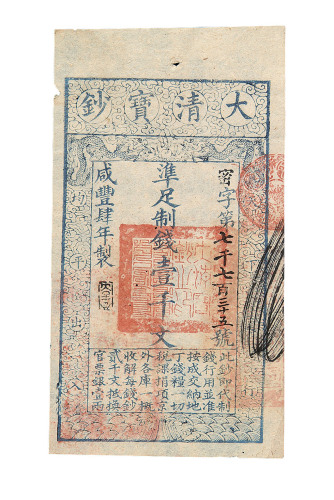 大清寶鈔
宻字第七千七百三十五號
準足制錢壹千文
咸豐肆年製
均平出入
此鈔即代制
錢行用並准
按成交納地
丁錢糧一切
稅課捐項京
外各庫一概
收解每錢鈔
貳千文抵換
官票銀壹兩